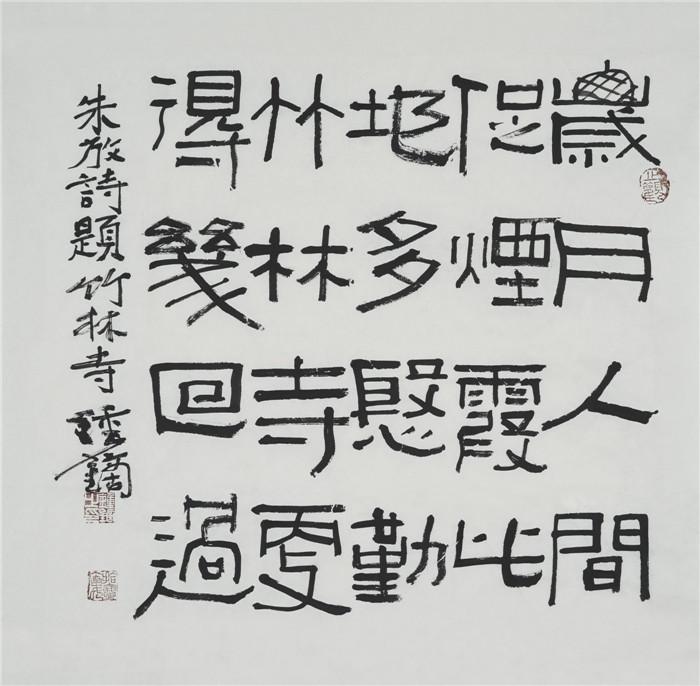 歲月人間
促煙霞此
地多慇勤
竹林寺更
得幾回過
朱放詩題竹林寺